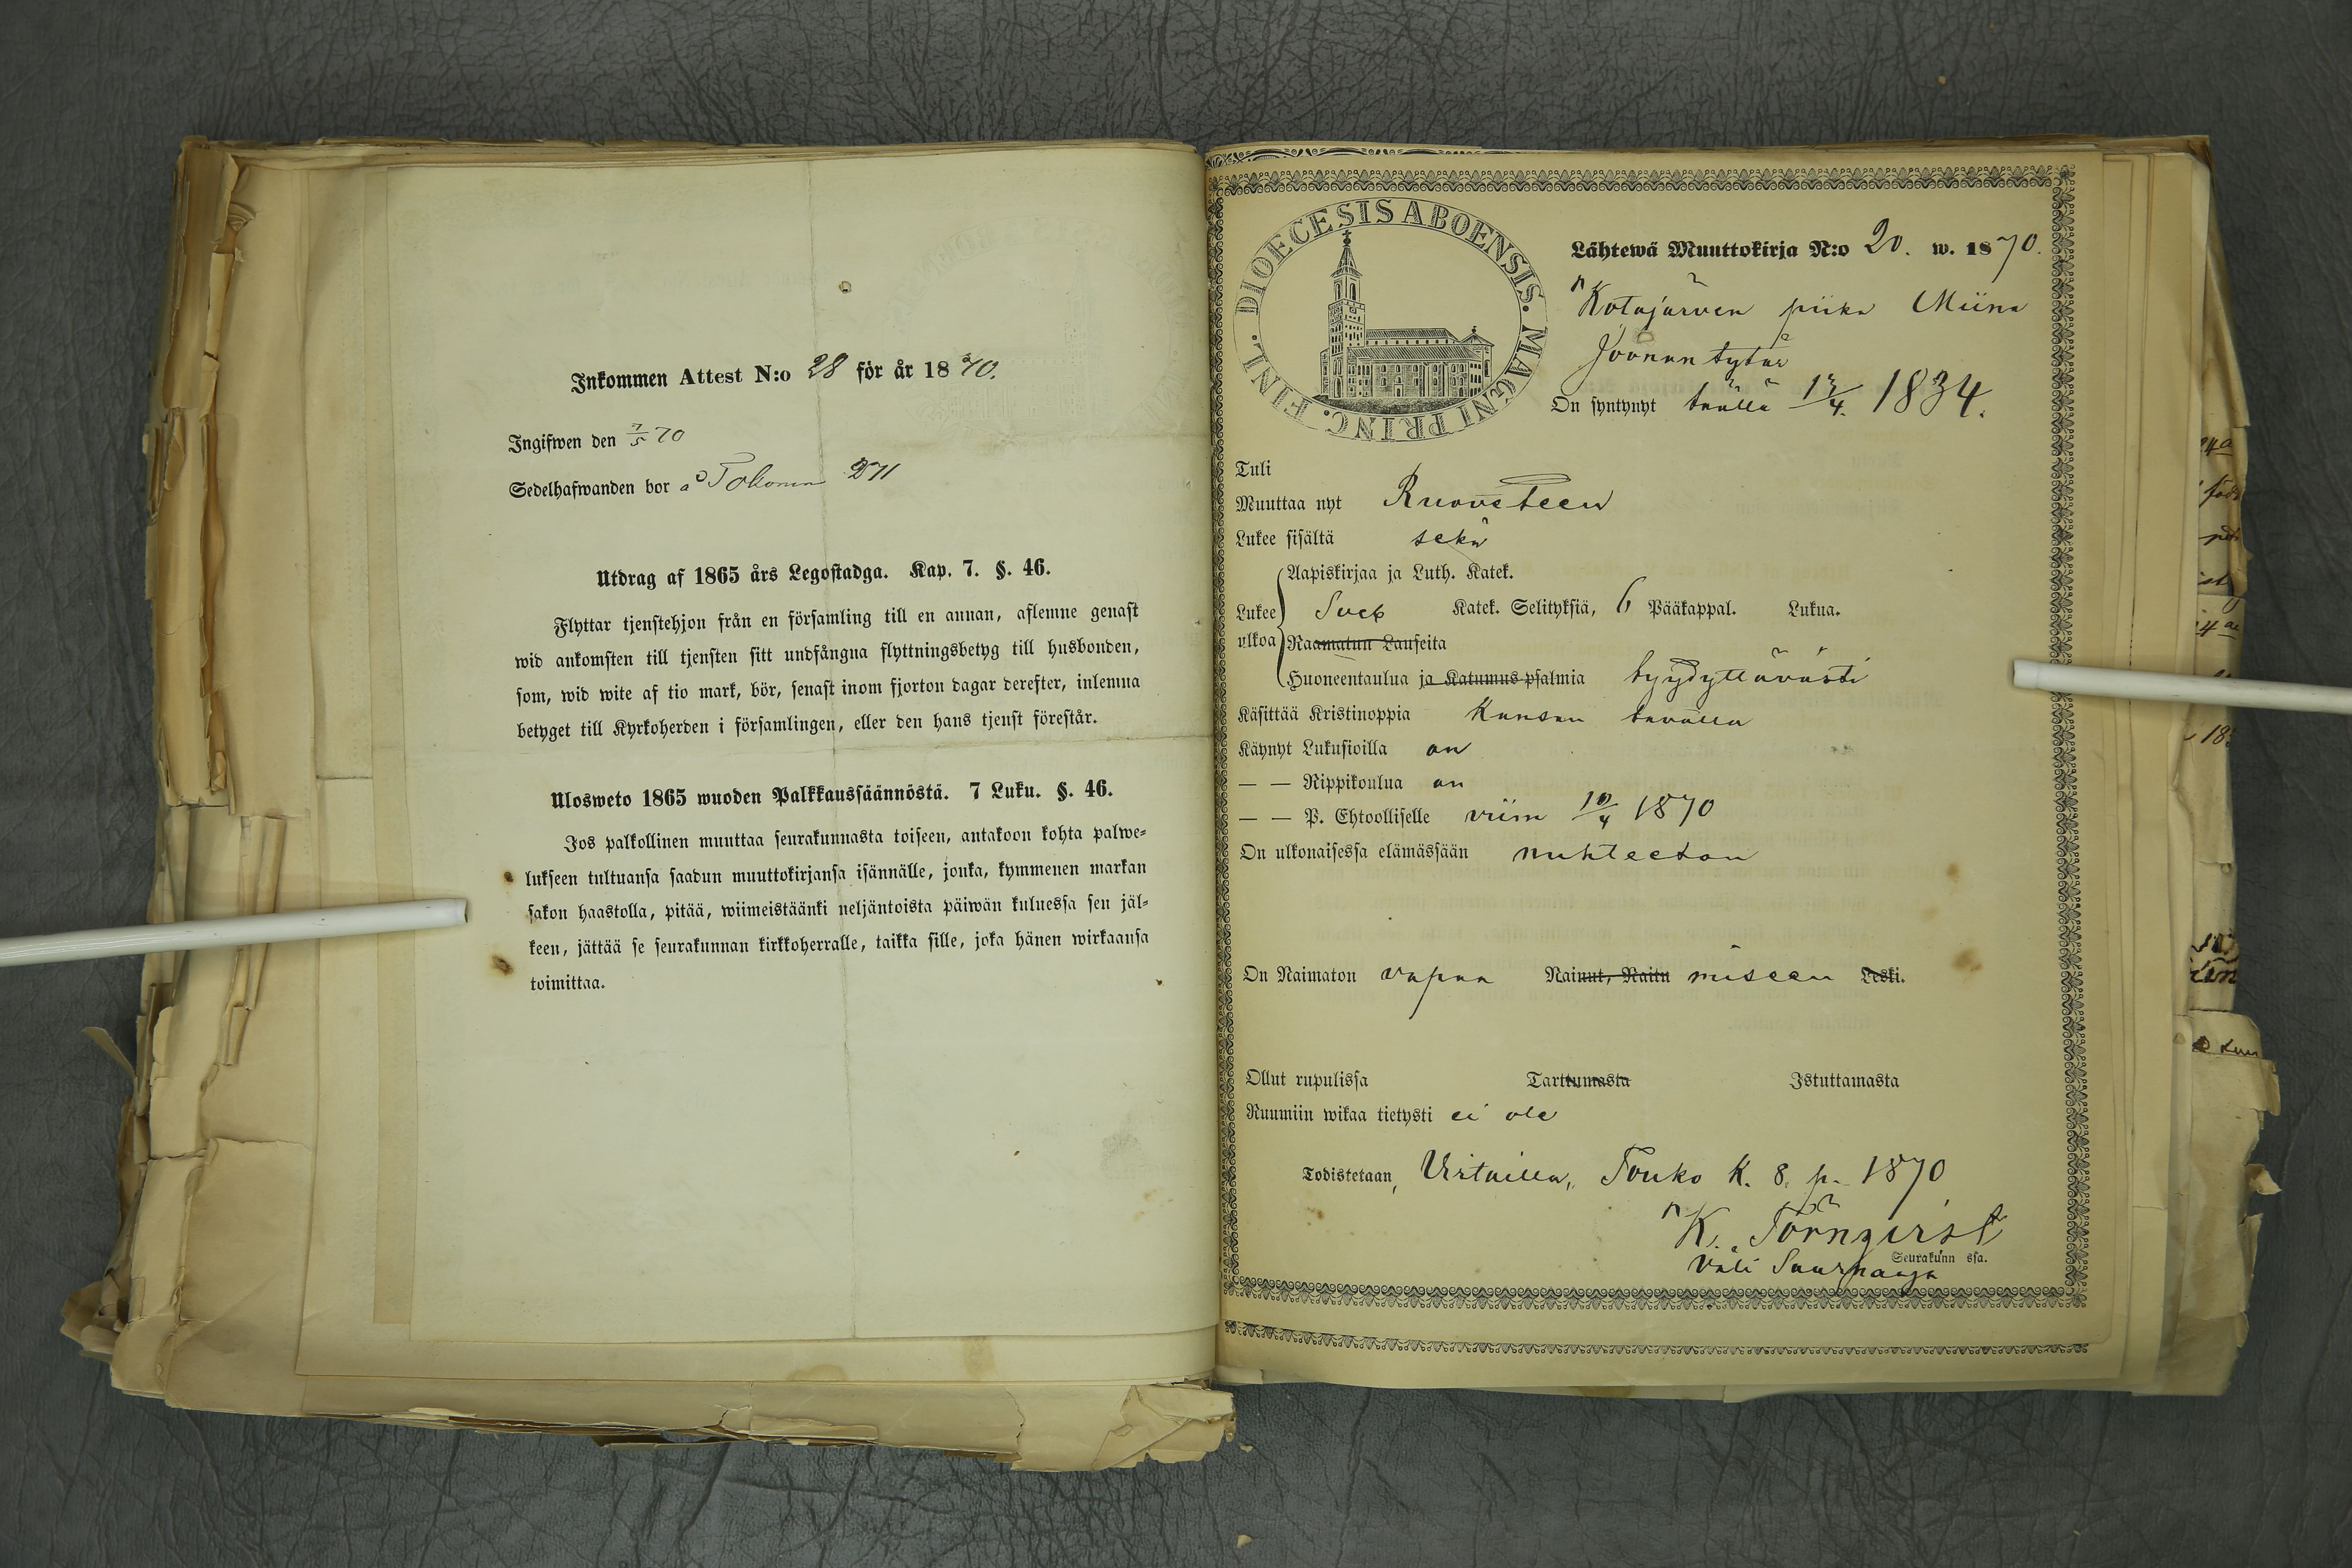 Inkommen Attest N:o 28 för år 1870.
Ingifwen den 7/5 70
Sedelhafwanden bor å
Utdrag af 1865 års Legostadga. Kap. 7. §. 46.
Flyttar tjenstehjon från en församling till en annan, aflemne genast
wid ankomsten till tjensten sitt undfångna flyttningsbetyg till husbonden,
som, wid wite af tio mark, bör, senast inom fjorton dagar derefter, inlemna
betyget till Kyrkoherden i församlingen, eller den hans tjenst förestår.
Ulosweto 1865 wuoden Palkkaussäännöstä. 7 Luku. §. 46.
Jos palkollinen muuttaa seurakunnasta toiseen, antakoon kohta palwe-
lukseen tultuansa saadun muuttokirjansa isännälle, jonka, kymmenen markan
sakon haastolla, pitää, wiimeistäänki neljäntoista päiwän kuluessa sen jäl-
keen, jättää se seurakunnan kirkkoherralle, taikka sille, joka hänen wirkaansa
toimittaa.
DIOECESIS ABOENSIS. MAGNI PRINC. FINL.
Lähtewä Muuttokirja N:o 20. w. 1870.
Kotajärven piika Miina
Joonan tytär
On syntynyt täällä 13/4. 1834.
Tuli
Muuttaa nyt Ruoveteen
Lukee sisältä sekä
Aapiskirjaa ja Luth. Katek.
Lukee ulkoa Sveb Katek. Selityksiä, 6 Pääkappal. Lukua.
Raamatun Lauseita
Huoneentaulua ja Katumus-psalmia tyydyttävästi
Käsittää Kristinoppia Kansan tavalla
Käynyt Lukusioilla on
— — Rippikoulua on
— — P. Ehtoolliselle viim 10/4 1870
On ulkonaisessa elämässään nuhteeton
On Naimaton vapaa Nainut, Naitu miseen Leski.
Ollut rupulissa Tarttumasta Istuttamasta
Ruumiin wikaa tietysti ei ole
Todistetaan, Virtailla, Touko K. 8. p. 1870
K. Törnqvist
Seurakunn ssa.
Väli Saarnaaja